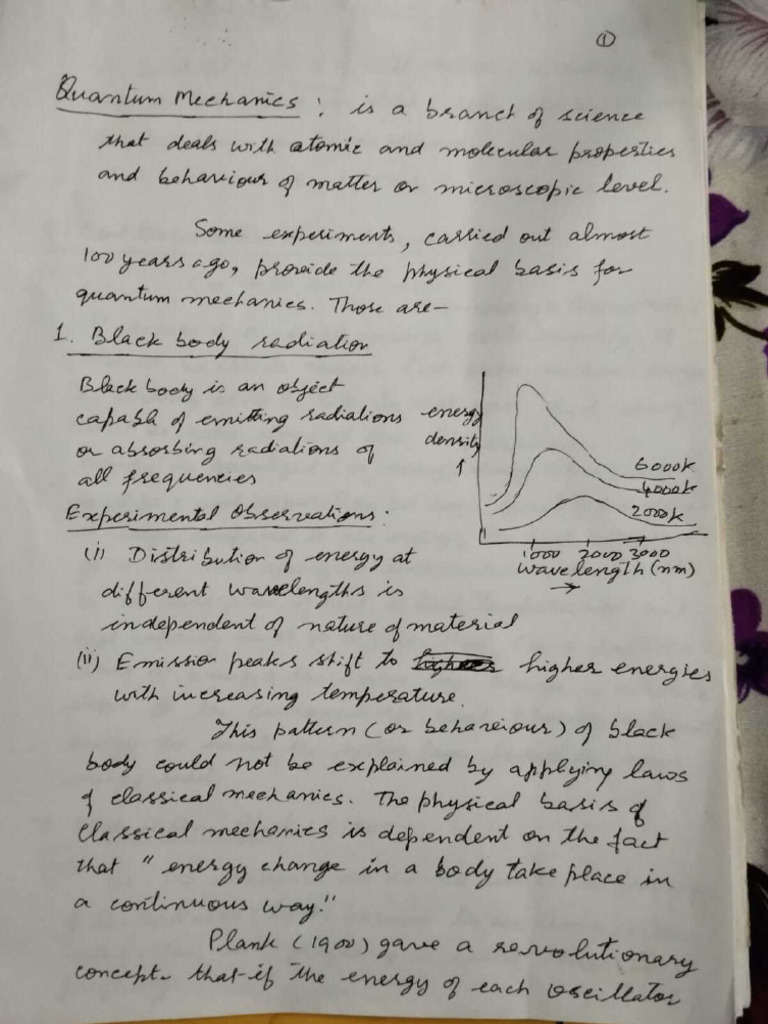 1
Quantum Mechanics : is a branch of science
that deals with atomic and molecular properties
and behaviour of matter or microscopic level.
Some experiments, carried out almost
100 years ago, provide the physical basis for
quantum mechanics. Those are-
1. Black body radiation
Black body is an object
capable of emitting radiations
or absorbing radiations of
all frequencies
energy
density
↑
6000K
4000K
2000K
1000 2000 3000
wavelength (nm)
→
Experimental Observations:
(i) Distribution of energy at
different wavelengths is
independent of nature of material
(ii) Emission peaks shift to higher energies
with increasing temperature.
This pattern (or behaviour) of black
body could not be explained by applying laws
of classical mechanics. The physical basis of
classical mechanics is dependent on the fact
that "energy change in a body take place in
a continuous way."
Plank (1900) gave a revolutionary
concept that if the energy of each oscillator